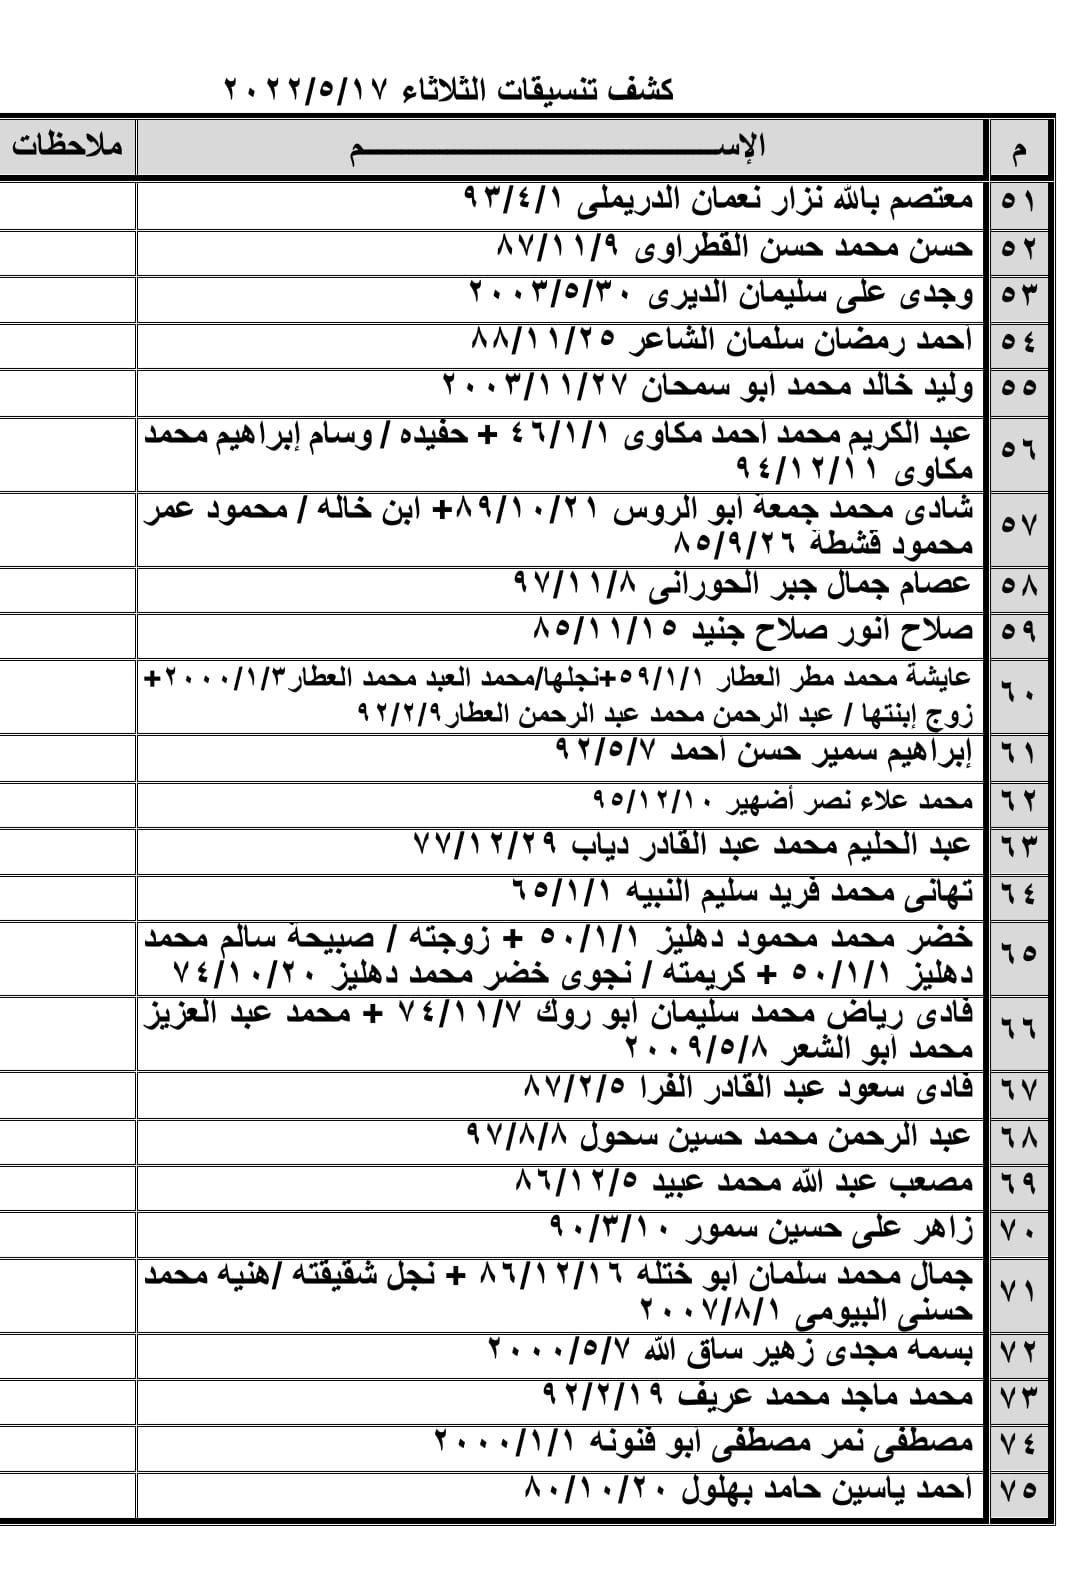 كشف تنسيقات الثلاثاء ٢٠٢٢/٥/١٧
م الإســـــــــــم ملاحظات
٥١ معتصم بالله نزار نعمان الدريملى ٩٣/٤/١
٥٢ حسن محمد حسن القطراوى ٨٧/١١/٩
٥٣ وجدى على سليمان الديرى ٢٠٠٣/٥/٣٠
٥٤ أحمد رمضان سلمان الشاعر ٨٨/١١/٢٥
٥٥ وليد خالد محمد أبو سمحان ٢٠٠٣/١١/٢٧
٥٦ عبد الكريم محمد أحمد مكاوى ٤٦/١/١ + حفيده / وسام إبراهيم محمد
مكاوى ٩٤/١٢/١١
٥٧ شادى محمد جمعة أبو الروس ٨٩/١٠/٢١+ ابن خاله / محمود عمر
محمود قشطة ٨٥/٩/٢٦
٥٨ عصام جمال جبر الحورانى ٩٧/١١/٨
٥٩ صلاح أنور صلاح جنيد ٨٥/١١/١٥
٦٠ عايشة محمد مطر العطار ٥٩/١/١+نجلها/محمد العبد محمد العطار٢٠٠٠/١/٣+
زوج إبنتها / عبد الرحمن محمد عبد الرحمن العطار٩٢/٢/٩
٦١ إبراهيم سمير حسن أحمد ٩٢/٥/٧
٦٢ محمد علاء نصر أضهير ٩٥/١٢/١٠
٦٣ عبد الحليم محمد عبد القادر دياب ٧٧/١٢/٢٩
٦٤ تهانى محمد فريد سليم النبيه ٦٥/١/١
٦٥ خضر محمد محمود دهليز ٥٠/١/١ + زوجته / صبيحة سالم محمد
دهليز ٥٠/١/١ + كريمته / نجوى خضر محمد دهليز ٧٤/١٠/٢٠
٦٦ فادى رياض محمد سليمان أبو روك ٧٤/١١/٧ + محمد عبد العزيز
محمد أبو الشعر ٢٠٠٩/٥/٨
٦٧ فادى سعود عبد القادر الفرا ٨٧/٢/٥
٦٨ عبد الرحمن محمد حسين سحول ٩٧/٨/٨
٦٩ مصعب عبد الله محمد عبيد ٨٦/١٢/٥
٧٠ زاهر على حسين سمور ٩٠/٣/١٠
٧١ جمال محمد سلمان أبو ختله ٨٦/١٢/١٦ + نجل شقيقته /هنيه محمد
حسنى البيومى ٢٠٠٧/٨/١
٧٢ بسمه مجدى زهير ساق الله ٢٠٠٠/٥/٧
٧٣ محمد ماجد محمد عريف ٩٢/٢/١٩
٧٤ مصطفى نمر مصطفى أبو فنونه ٢٠٠٠/١/١
٧٥ أحمد ياسين حامد بهلول ٨٠/١٠/٢٠